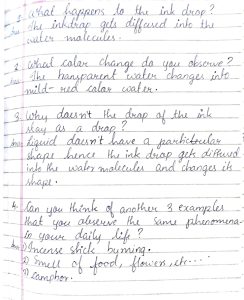 1. What happens to the ink drop?
Ans: The inkdrop gets diffused into the
water molecules.
2. What color change do you observe?
Ans: The transparent water changes into
mild-red color water.
3. Why doesn't the drop of the ink
stay as a drop?
Ans: Liquid doesn't have a particular
shape hence the ink drop gets diffused
into the water molecules and changes its
shape.
4. Can you think of another 3 examples
that you observe the same phenomena-
in your daily life?
Ans: 1) Incense stick burning.
2) Smell of food, flower, etc....
3) Camphor.